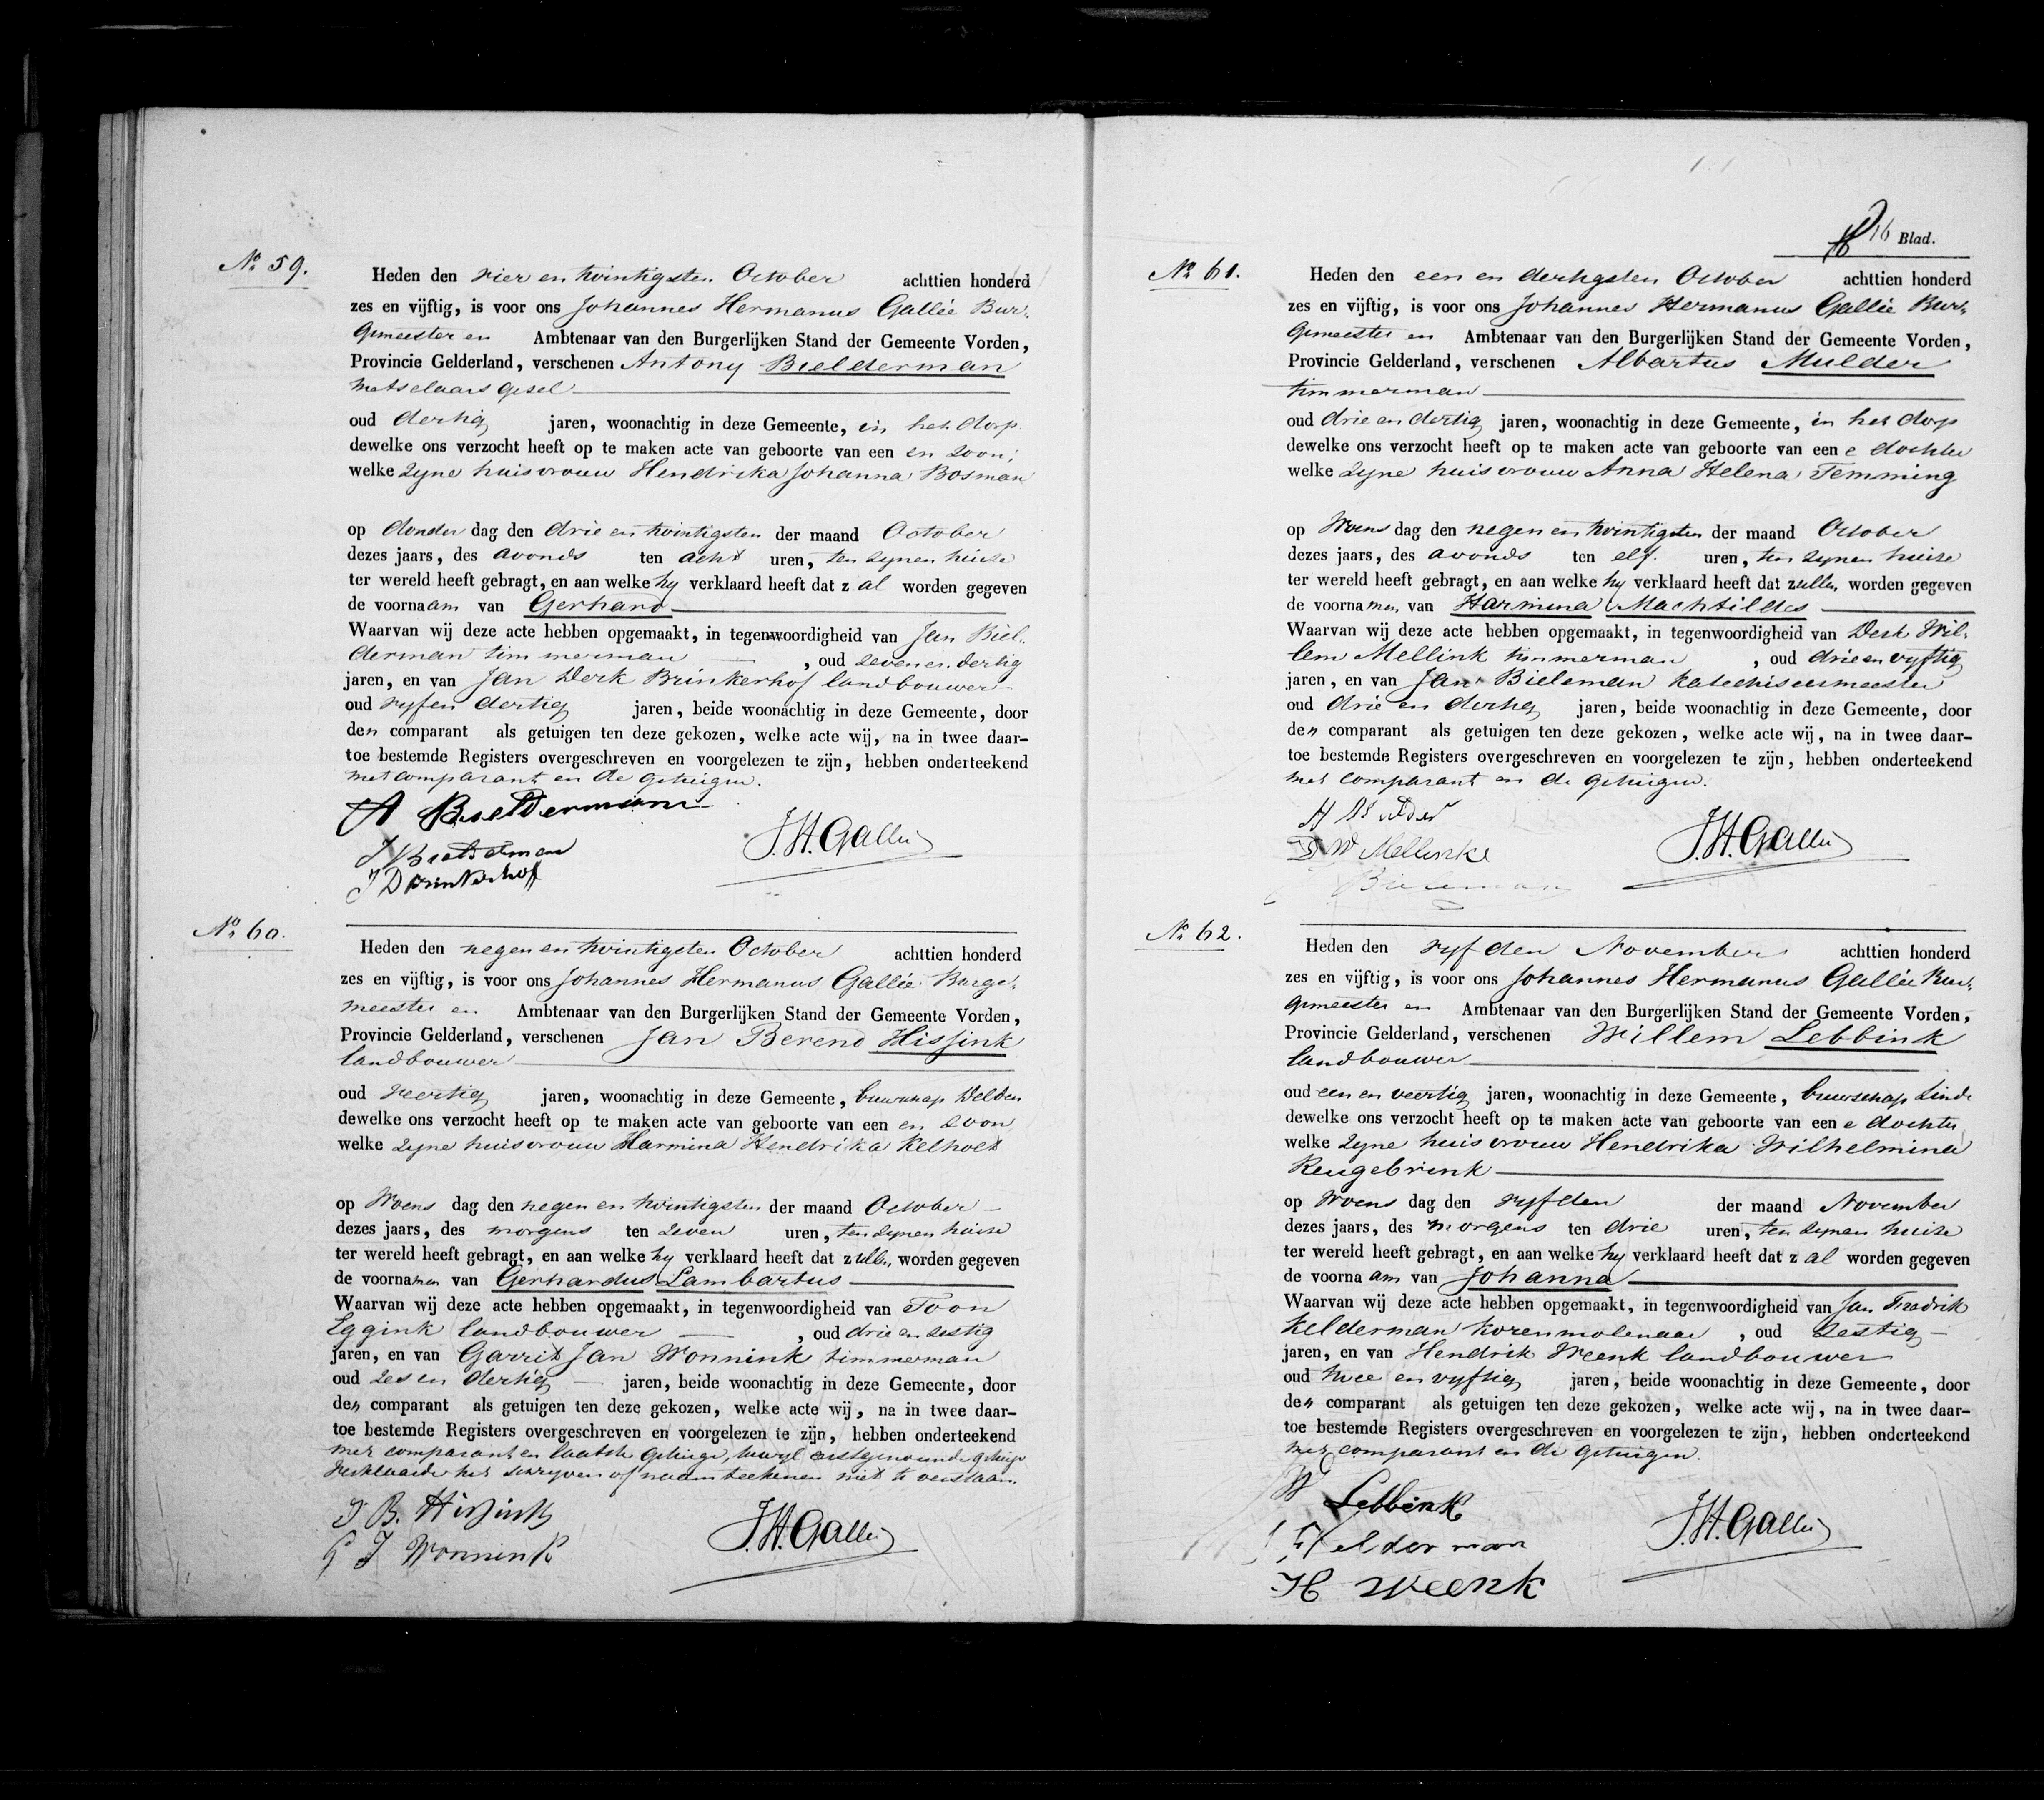 No 59.
Heden den vier en twintigsten October achttien honderd
zes en vijftig, is voor ons Johannes Hermanus Gallée Bur-
gemeester en Ambtenaar van den Burgerlijken Stand der Gemeente Vorden,
Provincie Gelderland, verschenen Antony Bielderman
metselaars gesel
oud dertig jaren, woonachtig in deze Gemeente, in het dorp
dewelke ons verzocht heeft op te maken acte van geboorte van een en zoon;
welke zyne huisvrouw Hendrika Johanna Bosman
op donder dag den drie en twintigsten der maand October
dezes jaars, des avonds ten acht uren, ten zynen huize
ter wereld heeft gebragt, en aan welke hy verklaard heeft dat z al worden gegeven
de voornaam van Gerhard
Waarvan wij deze acte hebben opgemaakt, in tegenwoordigheid van Jan Biel-
derman timmerman , oud zeven en dertig
jaren, en van Jan Derk Brinkerhof landbouwer
oud vyf en dertig jaren, beide woonachtig in deze Gemeente, door
den comparant als getuigen ten deze gekozen, welke acte wij, na in twee daar-
toe bestemde Registers overgeschreven en voorgelezen te zijn, hebben onderteekend
met comparant en de getuigen.
A Bielderman
J Bielderman
J D Brinkerhof
J.H. Gallée
No 60.
Heden den negen en twintigsten October achttien honderd
zes en vijftig, is voor ons Johannes Hermanus Gallée Burge-
meester en Ambtenaar van den Burgerlijken Stand der Gemeente Vorden,
Provincie Gelderland, verschenen Jan Berend Hissink
landbouwer
oud veertig jaren, woonachtig in deze Gemeente, buurschap Delden
dewelke ons verzocht heeft op te maken acte van geboorte van een en zoon
welke zyne huisvrouw Harmina Hendrika Kelholt
op Woens dag den negen en twintigsten der maand October
dezes jaars, des morgens ten zeven uren, ten zynen huize
ter wereld heeft gebragt, en aan welke hy verklaard heeft dat zullen worden gegeven
de voornamen van Gerhardus Lambartus
Waarvan wij deze acte hebben opgemaakt, in tegenwoordigheid van Toon
Eggink landbouwer , oud drie en zestig
jaren, en van Garrit Jan Wonnink timmerman
oud zes en dertig jaren, beide woonachtig in deze Gemeente, door
den comparant als getuigen ten deze gekozen, welke acte wij, na in twee daar-
toe bestemde Registers overgeschreven en voorgelezen te zijn, hebben onderteekend
met comparant en laatste getuige, terwyl eerstgenoemde getuige
verklaarde het schryven of naamteekenen niet te verstaan.
J B. Hissink
G J Wonnink
J.H. Gallée
16 Blad.
No 61.
Heden den een en dertigsten October achttien honderd
zes en vijftig, is voor ons Johannes Hermanus Gallée Bur-
gemeester en Ambtenaar van den Burgerlijken Stand der Gemeente Vorden,
Provincie Gelderland, verschenen Albartus Mulder
timmerman
oud drie en dertig jaren, woonachtig in deze Gemeente, in het dorp
dewelke ons verzocht heeft op te maken acte van geboorte van een e dochter
welke zyne huisvrouw Anna Helena Temming
op Woens dag den negen en twintigsten der maand October
dezes jaars, des avonds ten elf uren, ten zynen huize
ter wereld heeft gebragt, en aan welke hy verklaard heeft dat zullen worden gegeven
de voornamen van Harmina Machtildes
Waarvan wij deze acte hebben opgemaakt, in tegenwoordigheid van Derk Wil-
lem Mellink timmerman , oud drie en vyftig
jaren, en van Jan Bieleman katechiseermeester
oud drie en dertig jaren, beide woonachtig in deze Gemeente, door
den comparant als getuigen ten deze gekozen, welke acte wij, na in twee daar-
toe bestemde Registers overgeschreven en voorgelezen te zijn, hebben onderteekend
met comparant en de getuigen.
A Mulder
D W Mellink
Bieleman
J.H. Gallée
No 62.
Heden den vyfden November achttien honderd
zes en vijftig, is voor ons Johannes Hermanus Gallée Bur-
gemeester en Ambtenaar van den Burgerlijken Stand der Gemeente Vorden,
Provincie Gelderland, verschenen Willem Lebbink
landbouwer
oud een en veertig jaren, woonachtig in deze Gemeente, buurschap Linde
dewelke ons verzocht heeft op te maken acte van geboorte van een e dochter
welke zyne huisvrouw Hendrika Wilhelmina
Reugebrink
op Woens dag den vyfden der maand November
dezes jaars, des morgens ten drie uren, ten zynen huize
ter wereld heeft gebragt, en aan welke hy verklaard heeft dat z al worden gegeven
de voornaam van Johanna
Waarvan wij deze acte hebben opgemaakt, in tegenwoordigheid van Jan Fredrik
Kelderman korenmolenaar , oud zestig
jaren, en van Hendrik Weenk landbouwer
oud twee en vyftig jaren, beide woonachtig in deze Gemeente, door
den comparant als getuigen ten deze gekozen, welke acte wij, na in twee daar-
toe bestemde Registers overgeschreven en voorgelezen te zijn, hebben onderteekend
met comparant en de getuigen.
W Lebbink
J F Kelderman
H Weenk
J.H. Gallée